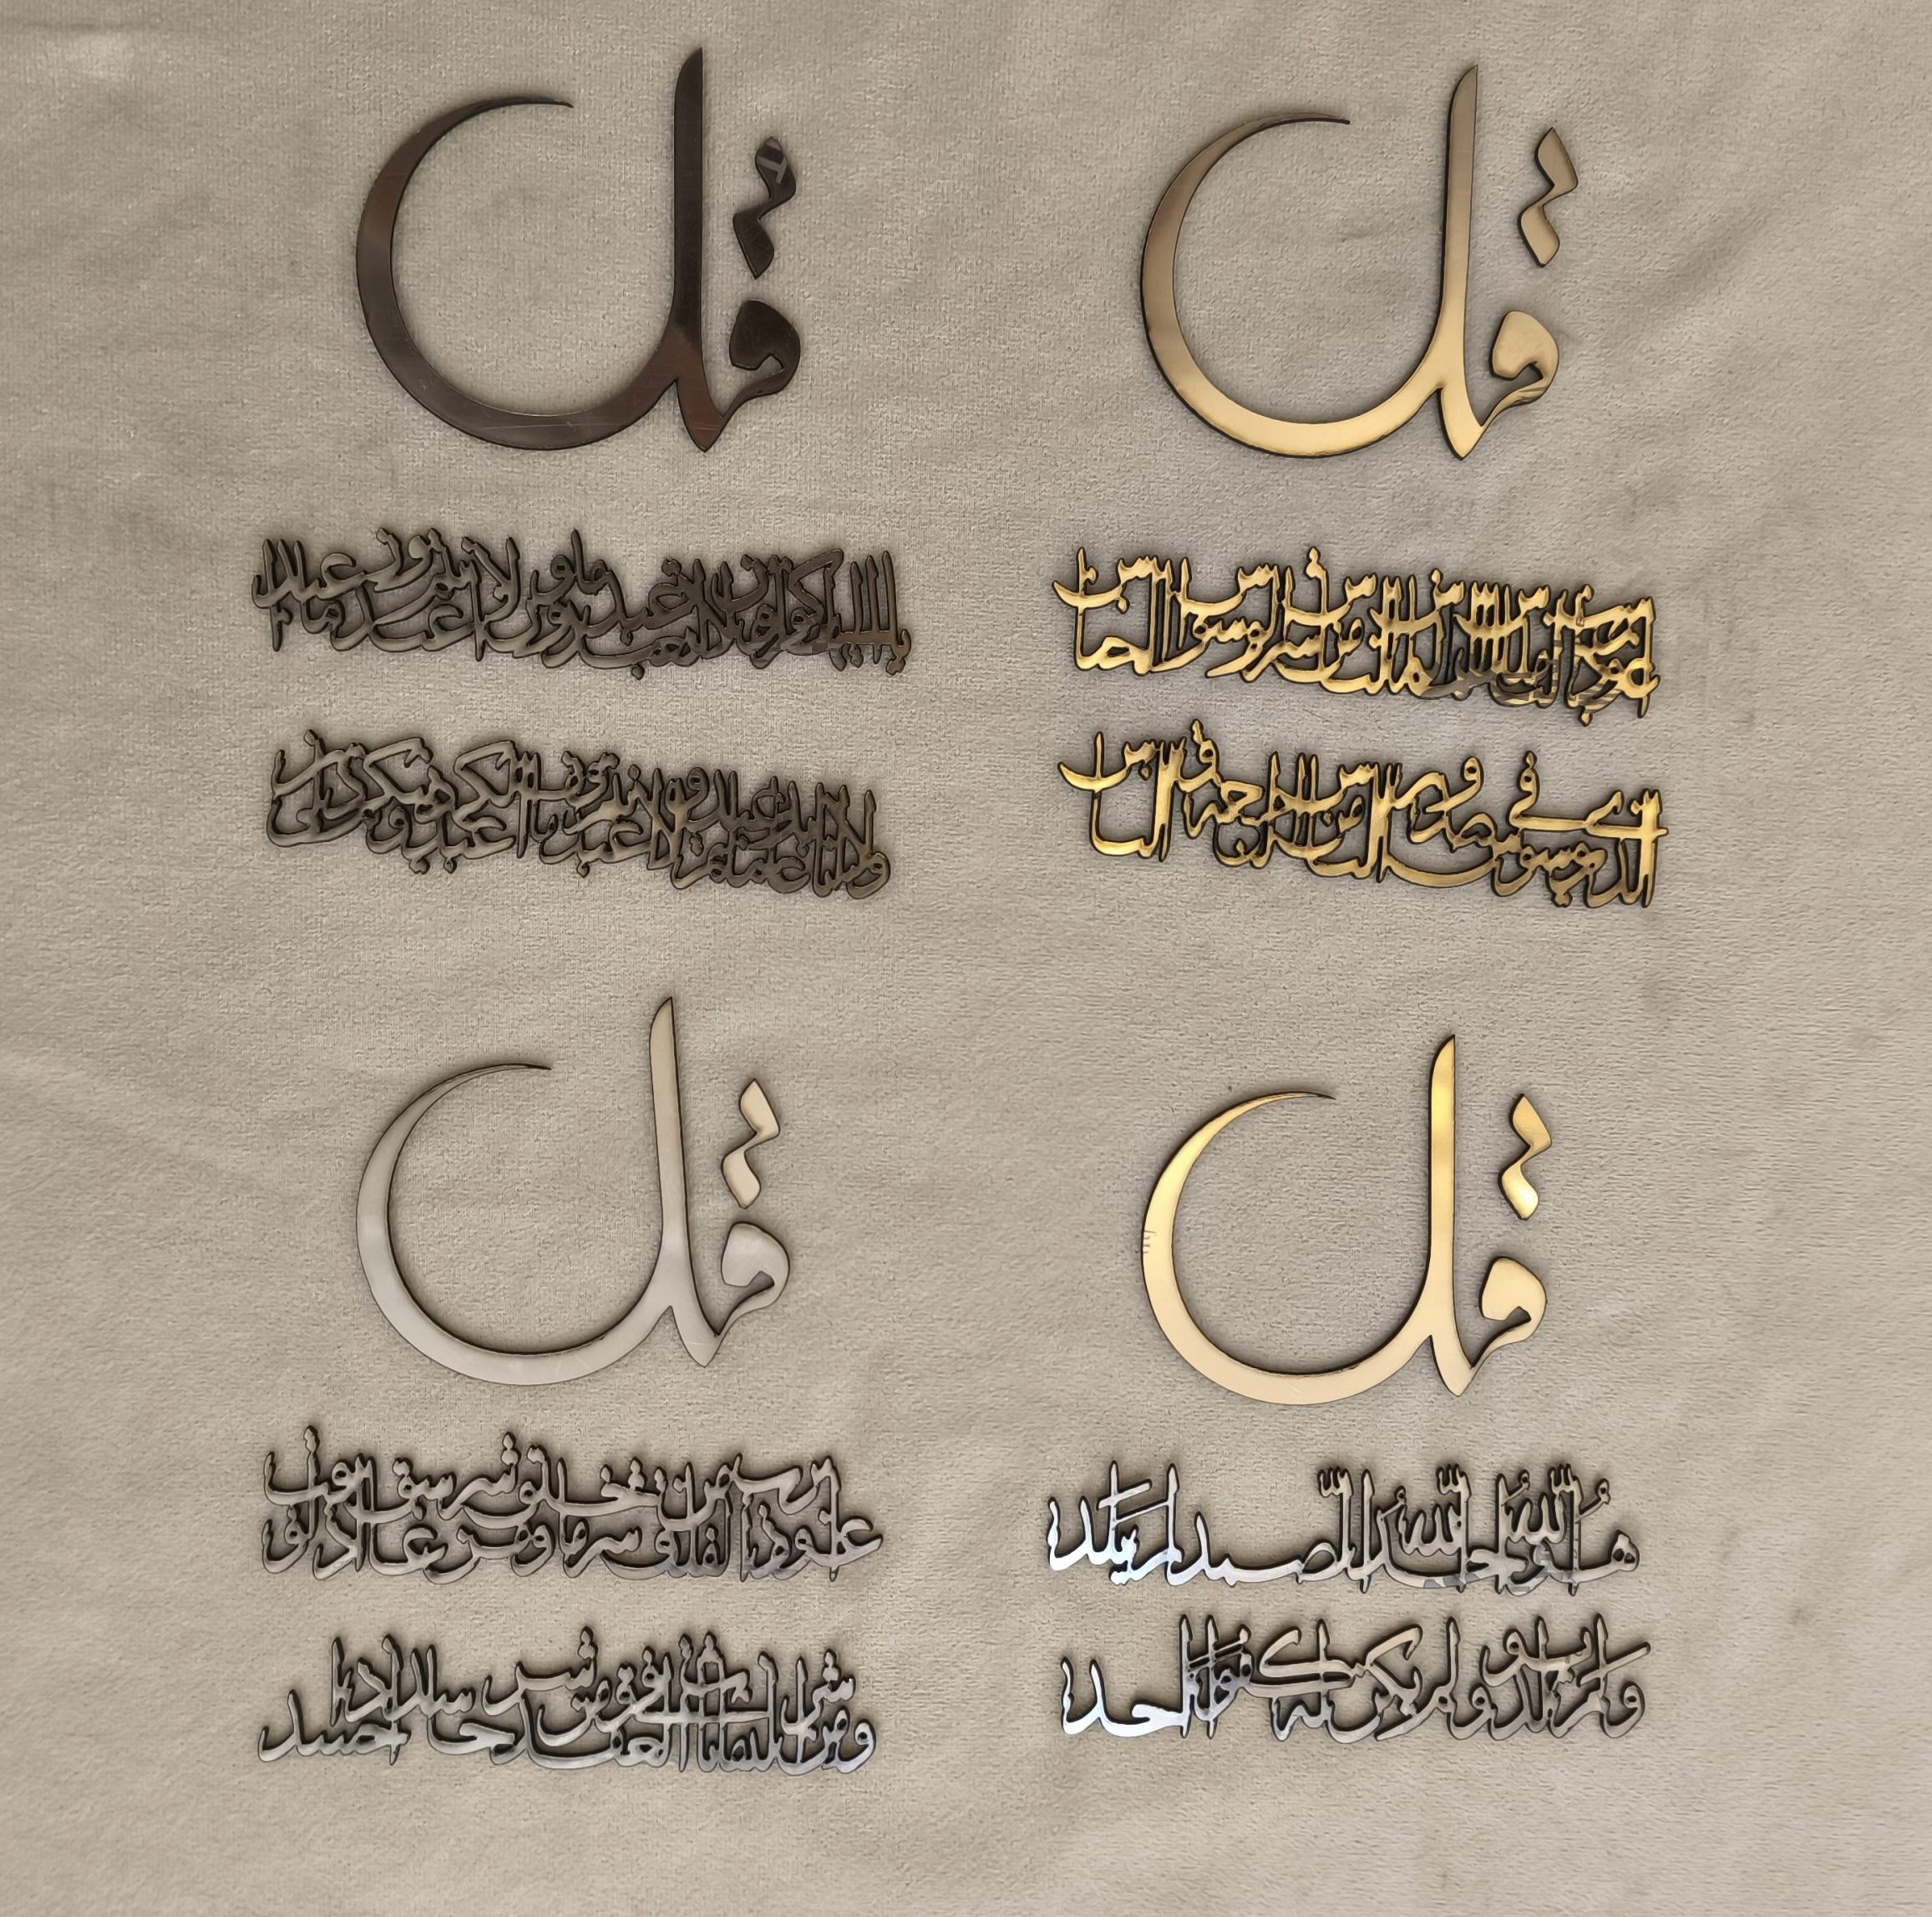 قل
اعوذ برب الناس ملك الناس اله الناس من شر الوسواس الخناس
الذي يوسوس في صدور الناس من الجنة و الناس
قل
يا ايها الكافرون لا اعبد ما تعبدون ولا انتم عابدون ما اعبد
ولا انا عابد ما عبدتم ولا انتم عابدون ما اعبد لكم دينكم ولي دين
قل
هُو اللهُ احد اللهُ الصمد لم يلد
ولم يولد ولم يكن له كفوًا احد
قل
اعوذ برب الفلق من شر ما خلق ومن شر غاسق اذا وقب
ومن شر النفاثات في العقد ومن شر حاسد اذا حسد